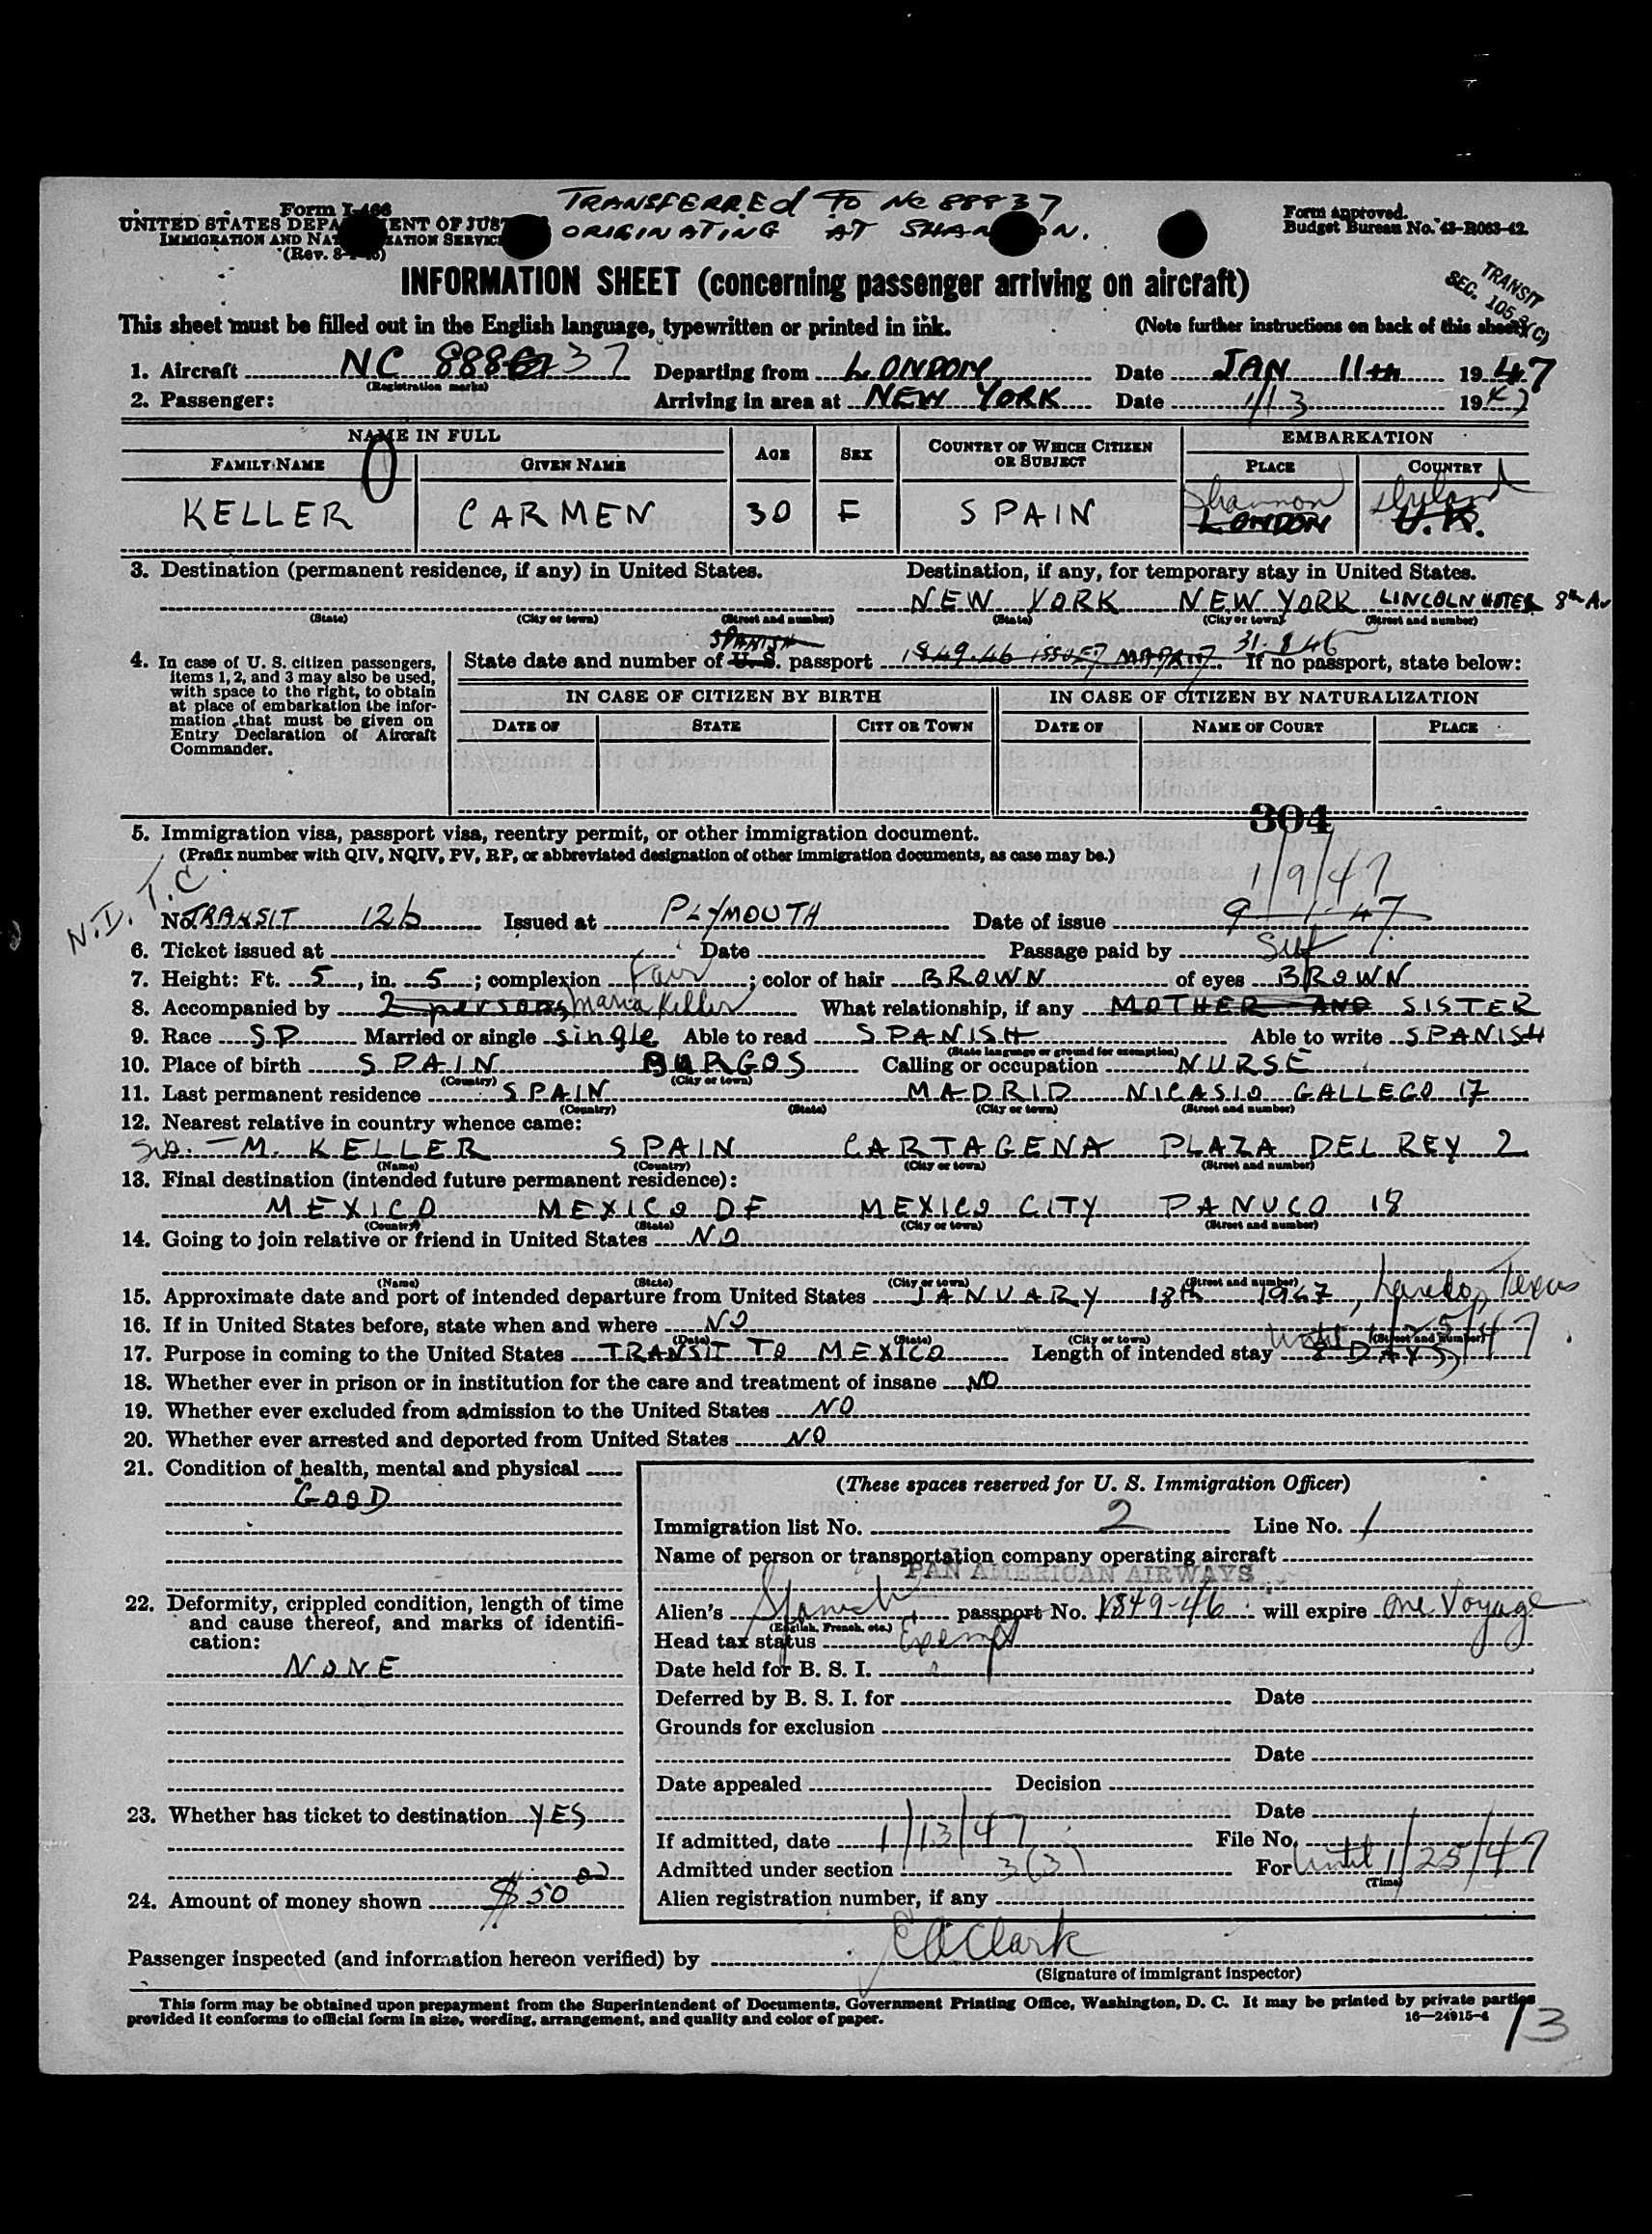 TRANSFERRED TO NC 88837
ORIGINATING AT SHANNON.
Form I-466
UNITED STATES DEPARTMENT OF JUSTICE
IMMIGRATION AND NATURALIZATION SERVICE
(Rev. 8-1-45)
Form approved.
Budget Bureau No. 43-R063-42.
INFORMATION SHEET (concerning passenger arriving on aircraft)
TRANSIT
SEC. 105.3(C)
This sheet must be filled out in the English language, typewritten or printed in ink. (Note further instructions on back of this sheet)
1. Aircraft NC 88837 Departing from LONDON Date JAN 11th 1947
(Registration marks)
2. Passenger: Arriving in area at NEW YORK Date 1/13 1947
NAME IN FULL AGE SEX COUNTRY OF WHICH CITIZEN OR SUBJECT EMBARKATION
FAMILY NAME GIVEN NAME PLACE COUNTRY
Shannon Ireland
KELLER CARMEN 30 F SPAIN LONDON U.K.
3. Destination (permanent residence, if any) in United States. Destination, if any, for temporary stay in United States.
NEW YORK NEW YORK LINCOLN HOTEL 8th Av
(State) (City or town) (Street and number) (State) (City or town) (Street and number)
SPANISH 31-8-46
4. In case of U. S. citizen passengers, items 1, 2, and 3 may also be used, with space to the right, to obtain at place of embarkation the information that must be given on Entry Declaration of Aircraft Commander.
State date and number of U. S. passport 1849.46 ISSUED MADRID. If no passport, state below:
IN CASE OF CITIZEN BY BIRTH IN CASE OF CITIZEN BY NATURALIZATION
DATE OF STATE CITY OR TOWN DATE OF NAME OF COURT PLACE
304
5. Immigration visa, passport visa, reentry permit, or other immigration document.
(Prefix number with QIV, NQIV, PV, RP, or abbreviated designation of other immigration documents, as case may be.)
1/9/47
N.D.T.C.
No. TRANSIT 126 Issued at PLYMOUTH Date of issue 9-1-47
6. Ticket issued at Date Passage paid by Self
7. Height: Ft. 5, in. 5; complexion Fair; color of hair BROWN of eyes BROWN
8. Accompanied by 2 persons Maria Keller What relationship, if any MOTHER AND SISTER
9. Race SP Married or single single Able to read SPANISH Able to write SPANISH
(State language or ground for exemption)
10. Place of birth SPAIN BURGOS Calling or occupation NURSE
(Country) (City or town)
11. Last permanent residence SPAIN MADRID NICASIO GALLEGO 17
(Country) (State) (City or town) (Street and number)
12. Nearest relative in country whence came:
M. KELLER SPAIN CARTAGENA PLAZA DEL REY 2
(Name) (Country) (City or town) (Street and number)
13. Final destination (intended future permanent residence):
MEXICO MEXICO DF MEXICO CITY PANUCO 18
(Country) (State) (City or town) (Street and number)
14. Going to join relative or friend in United States NO
(Name) (State) (City or town) (Street and number)
15. Approximate date and port of intended departure from United States JANUARY 18th 1947, Laredo, Texas
16. If in United States before, state when and where NO
(Date) (State) (City or town) (Street and number)
until 1/25/47
17. Purpose in coming to the United States TRANSIT TO MEXICO Length of intended stay 8 DAYS
18. Whether ever in prison or in institution for the care and treatment of insane NO
19. Whether ever excluded from admission to the United States NO
20. Whether ever arrested and deported from United States NO
21. Condition of health, mental and physical
GOOD
22. Deformity, crippled condition, length of time and cause thereof, and marks of identification:
NONE
23. Whether has ticket to destination YES
24. Amount of money shown $50.00
(These spaces reserved for U. S. Immigration Officer)
Immigration list No. 2 Line No. 1
Name of person or transportation company operating aircraft
PAN AMERICAN AIRWAYS
Alien's Spanish passport No. 1849-46 will expire One Voyage
(English, French, etc.)
Head tax status Exempt
Date held for B. S. I.
Deferred by B. S. I. for Date
Grounds for exclusion
Date
Date appealed Decision
Date
If admitted, date 1/13/47 File No.
Admitted under section 3(3) For until 1/25/47
(Time)
Alien registration number, if any
Passenger inspected (and information hereon verified) by C A Clark
(Signature of immigrant inspector)
This form may be obtained upon prepayment from the Superintendent of Documents, Government Printing Office, Washington, D. C. It may be printed by private parties
provided it conforms to official form in size, wording, arrangement, and quality and color of paper. 16—24915-4
13